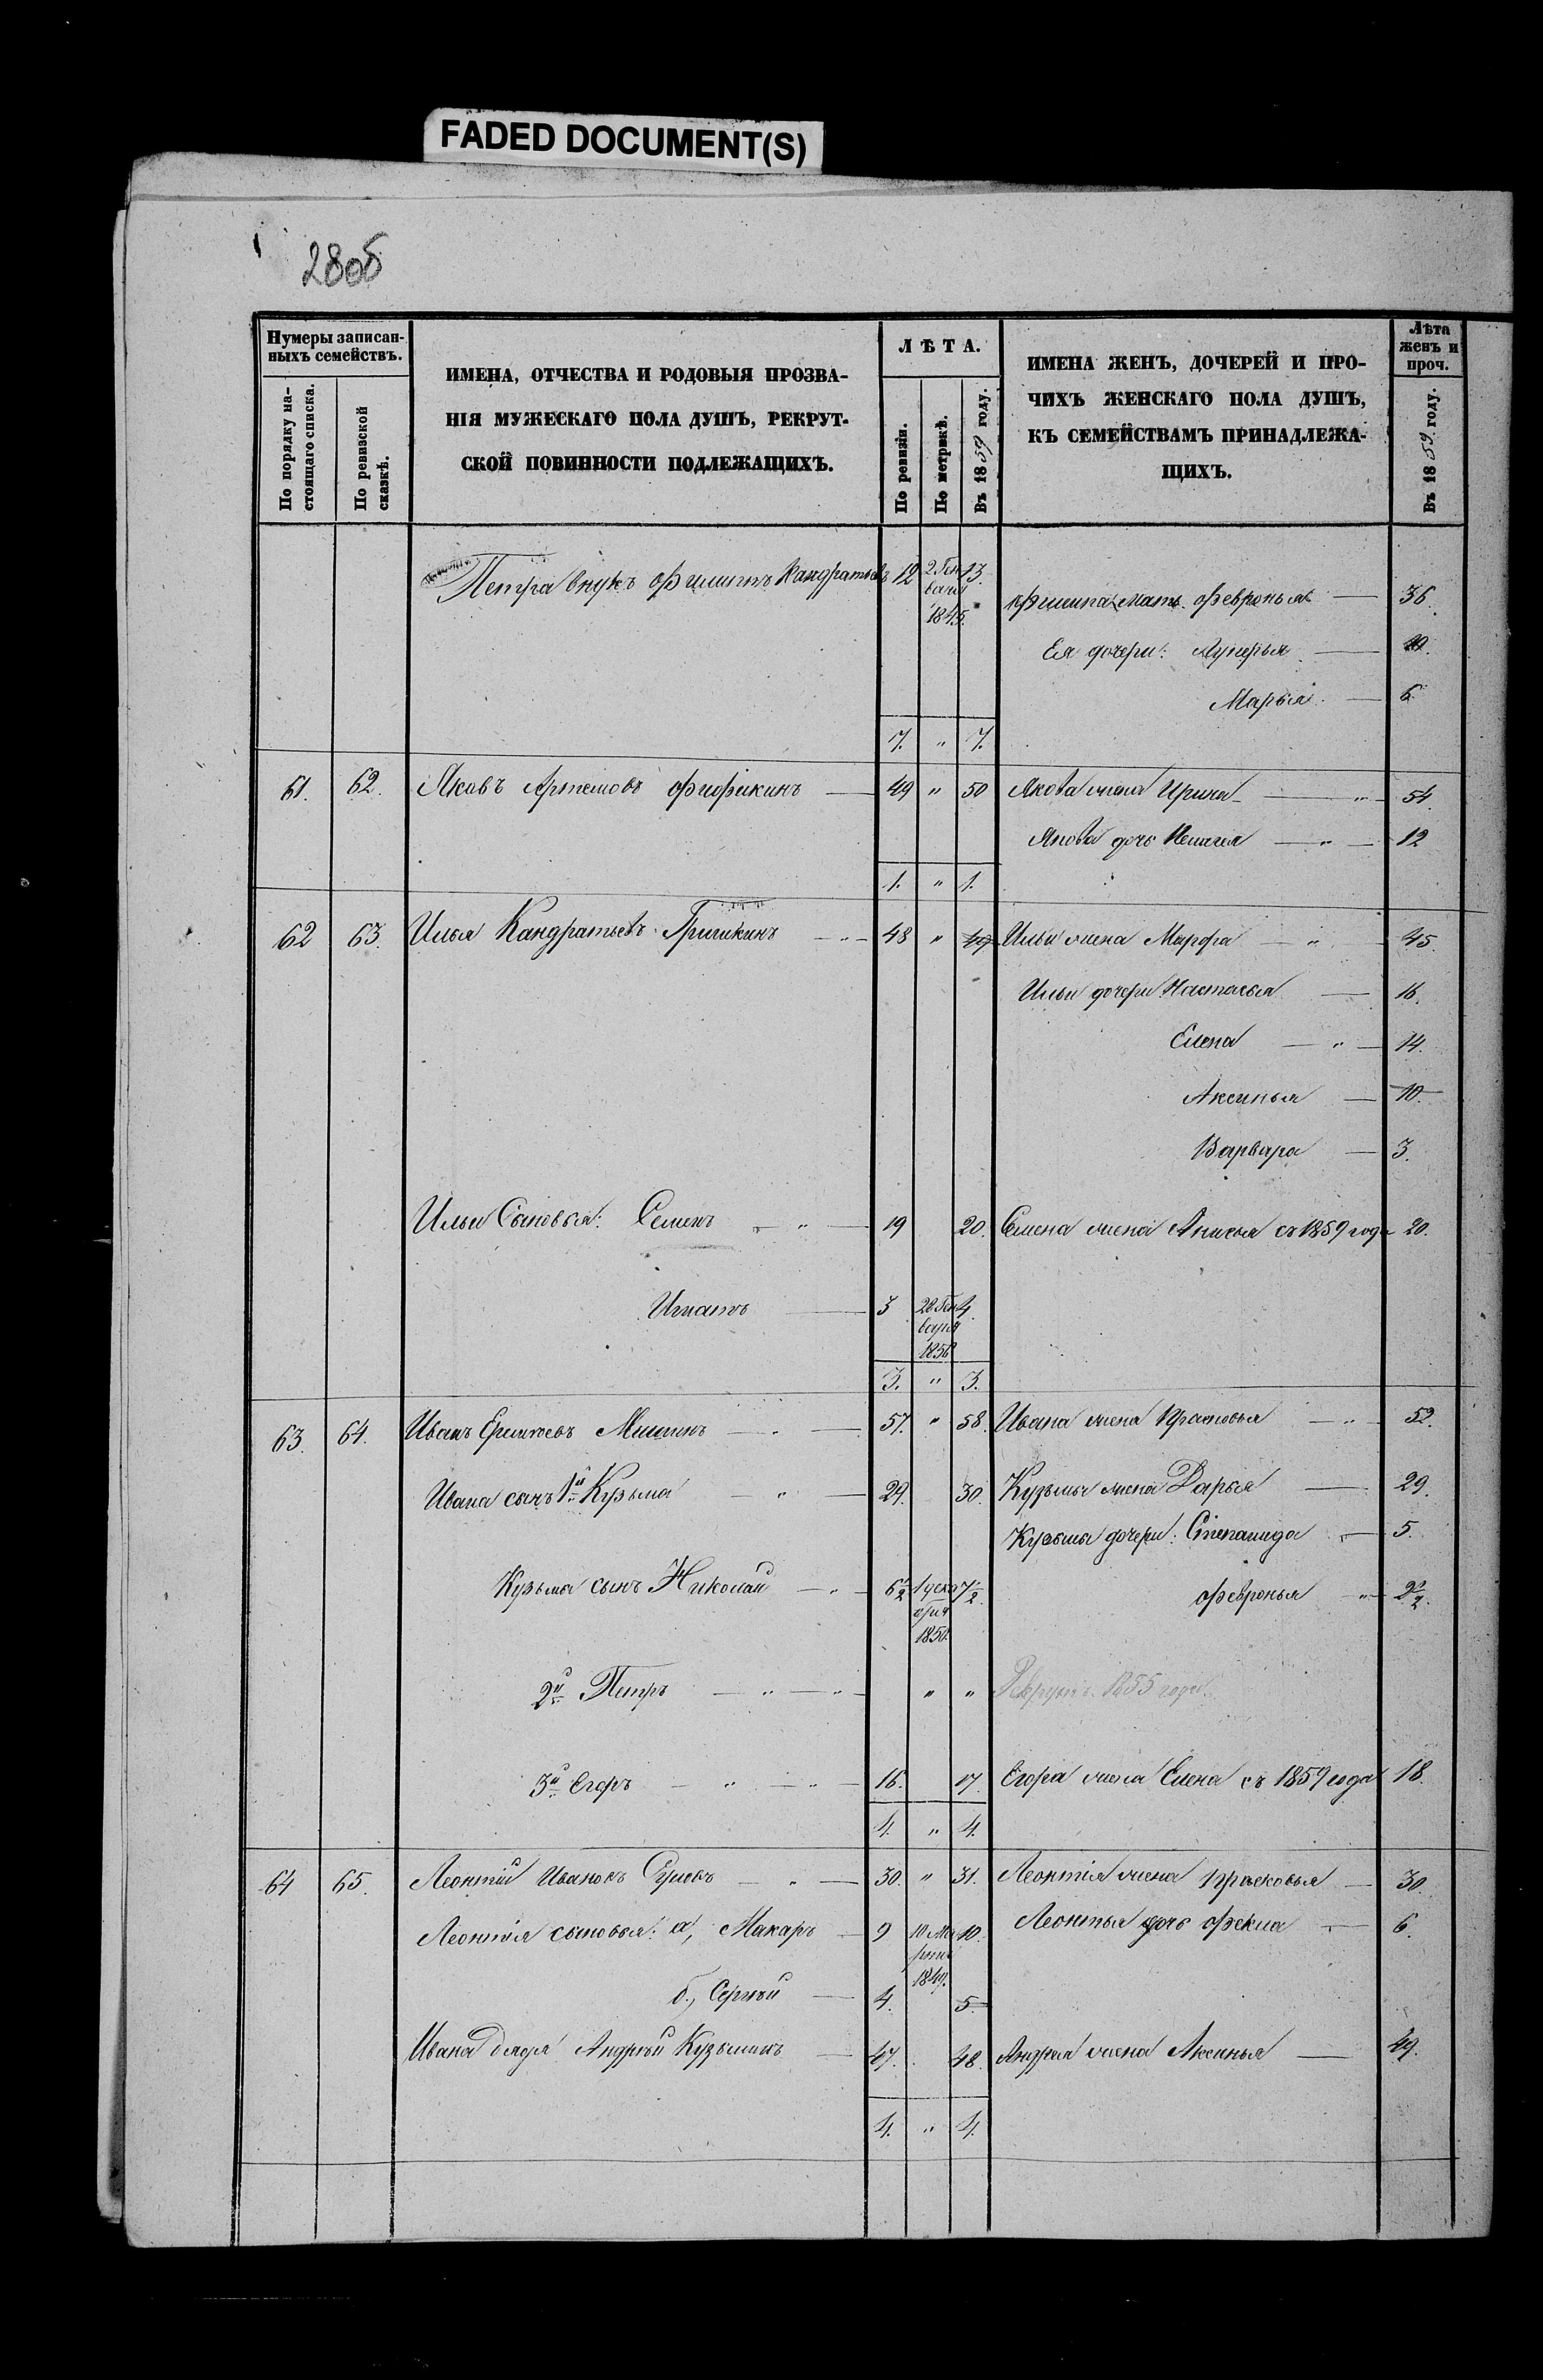 FADED DOCUMENT(S)
280б
Нумеры записан-
ныхъ семействъ.
По порядку на-
стоящаго списка.
По ревизской
сказкѣ.
ИМЕНА, ОТЧЕСТВА И РОДОВЫЯ ПРОЗВА-
НІЯ МУЖЕСКАГО ПОЛА ДУШЪ, РЕКРУТ-
СКОЙ ПОВИННОСТИ ПОДЛЕЖАЩИХЪ.
ЛѢТА.
По ревизіи.
По метрикѣ.
Въ 1859 году.
ИМЕНА ЖЕНЪ, ДОЧЕРЕЙ И ПРО-
ЧИХЪ ЖЕНСКАГО ПОЛА ДУШЪ,
КЪ СЕМЕЙСТВАМЪ ПРИНАДЛЕЖА-
ЩИХЪ.
Лѣта
женъ и
проч.
Въ 1859 году.
Петра внукъ Филипъ Кандратьевъ 12 2 Ген 13.
варя
1845.
Филипа мать Февронья — 36.
Ея дочери: Лукерья —
Марья — 6
7. " 7.
61. 62. Яковъ Артемовъ — 49 " 50 Якова жена Ирина — " — 54.
Якова дочь Пелагея — " — 12
1. " 1.
62 63. Илья Кандратьевъ Гришкинъ — " — 48 " 49 Ильи жена Марфа — " — 45.
Ильи дочери Настасья — 16.
Елена — " — 14.
Аксинья — 10.
Варвара — 3.
Ильи Сыновья: Семенъ — " — 19 20. Семена жена Анисья съ 1859 года 20.
Игнатъ — 3 28 Ген 4.
варя
1856
3. " 3.
63. 64. Иванъ Ермолаевъ Мишинъ — " — 57. " 58. Ивана жена Прасковья — " — 52.
Ивана сынъ 1й Кузьма — " — 29. 30. Кузьмы жена Дарья — 29.
Кузьмы дочери: Степанида — 5.
Кузьмы сынъ Николай — " — 6½ 1 дека 7½.
бря
1850.
Февронья — " — 2½.
2й Петръ — " — " — " " Рекрутъ 1855 года.
3й Егоръ — " — " — 16. 17. Егора жена Елена съ 1859 года 18.
4. " 4.
64 65. Леонтій Ивановъ — " — 30. " 31. Леонтія жена Прасковья — 30.
Леонтія сыновья: а, Макаръ — 9 10 Ма 10. Леонтья дочь Фекла — 6.
рта
1849.
б., Сергѣй — 4. 5.
Ивана дядя Андрей Кузьминъ — 47. 48. Андрея жена Аксинья — 49.
4. " 4.